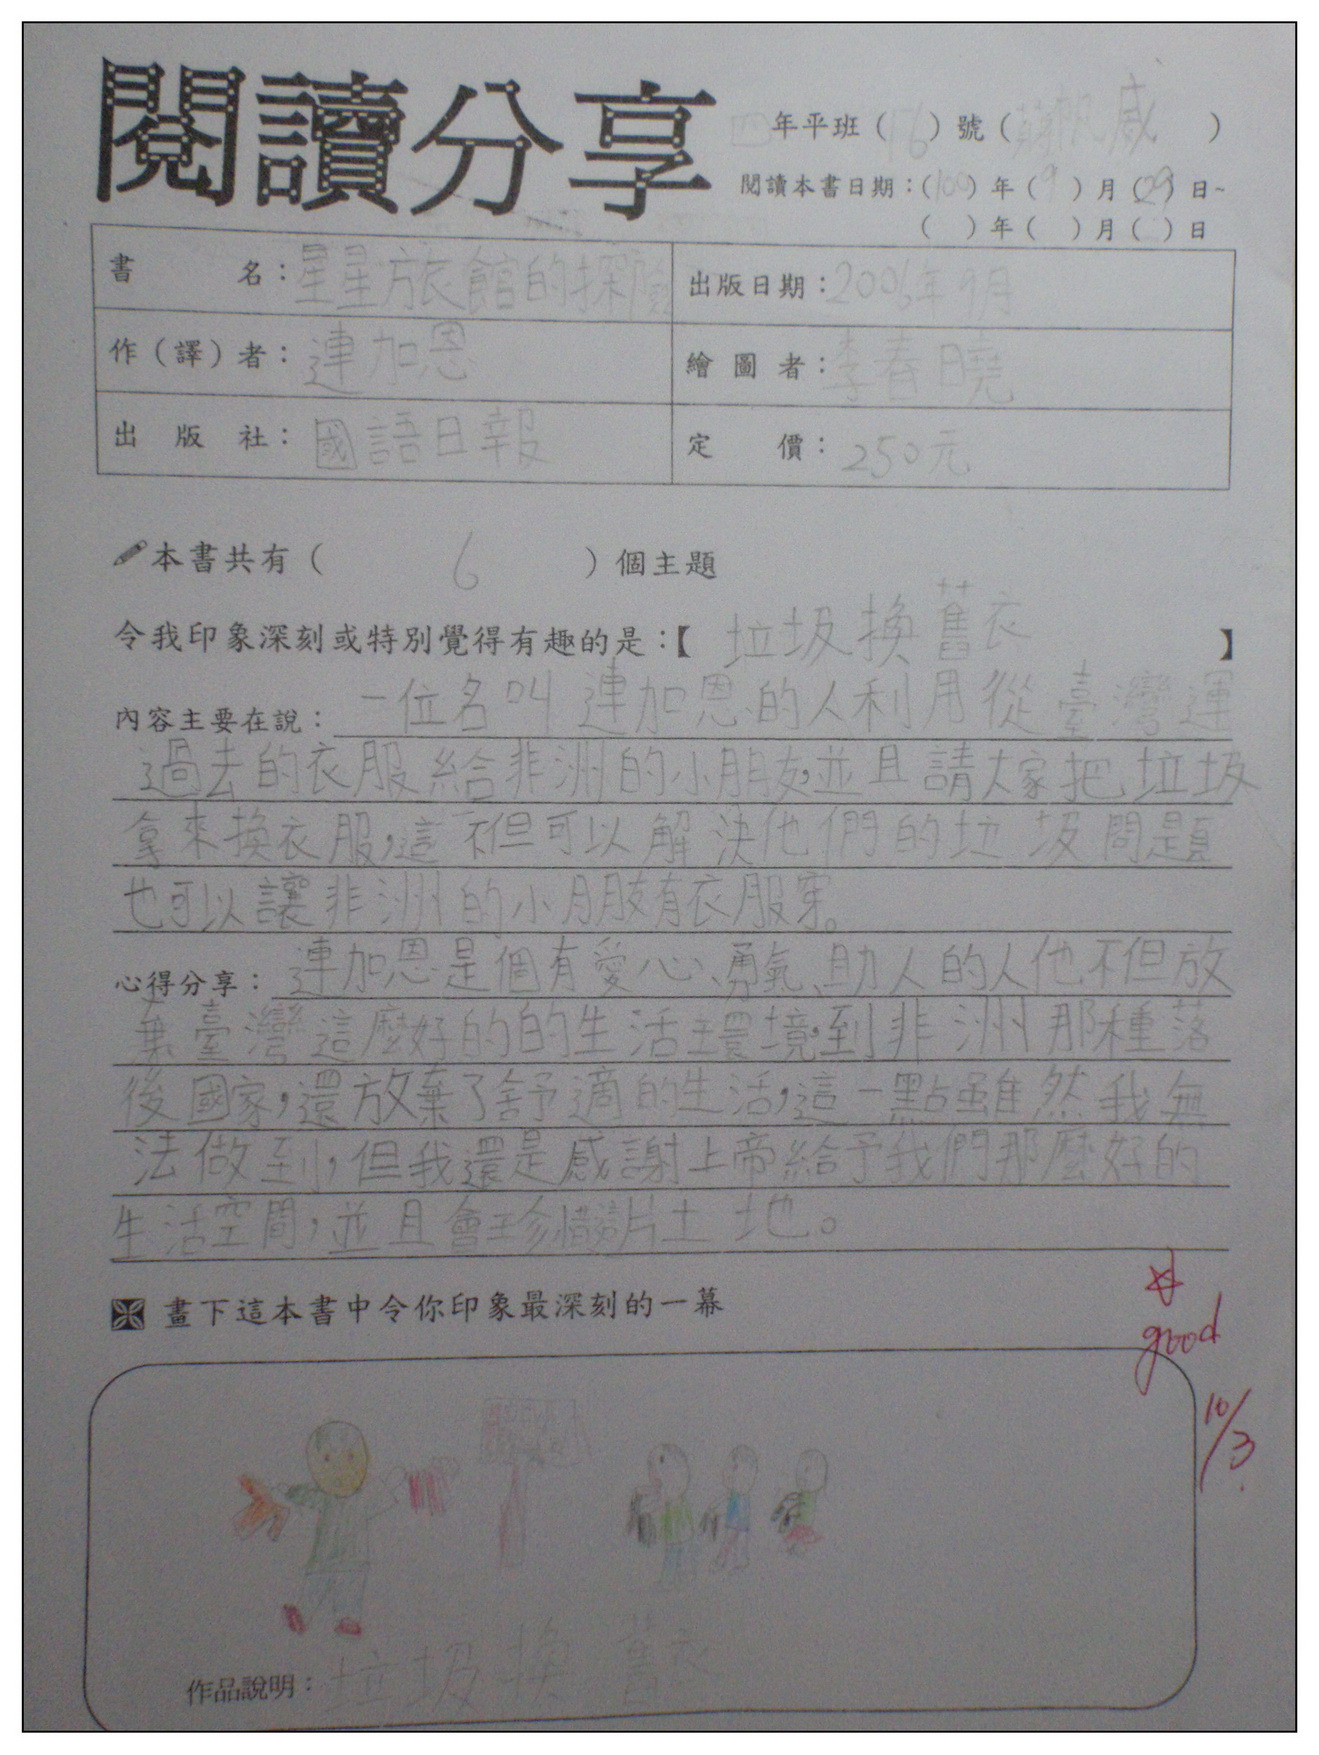 閱讀分享
四年平班（16）號（　威　）
閱讀本書日期：（100）年（9）月（29）日~
（　）年（　）月（　）日
書名：星星旅館的探險
出版日期：2006年9月
作（譯）者：連加恩
繪圖者：李春曉
出版社：國語日報
定價：250元
本書共有（ 6 ）個主題
令我印象深刻或特別覺得有趣的是：【垃圾換舊衣】
內容主要在說：一位名叫連加恩的人利用從臺灣運
過去的衣服給非洲的小朋友，並且請大家把垃圾
拿來換衣服，這不但可以解決他們的垃圾問題
也可以讓非洲的小朋友有衣服穿。
心得分享：連加恩是個有愛心、勇氣、助人的人他不但放
棄臺灣這麼好的的生活環境，到非洲那種落
後國家，還放棄了舒適的生活，這一點雖然我無
法做到，但我還是感謝上帝給予我們那麼好的
生活空間，並且會珍惜這片土地。
畫下這本書中令你印象最深刻的一幕
good
10/3
作品說明：垃圾換舊衣